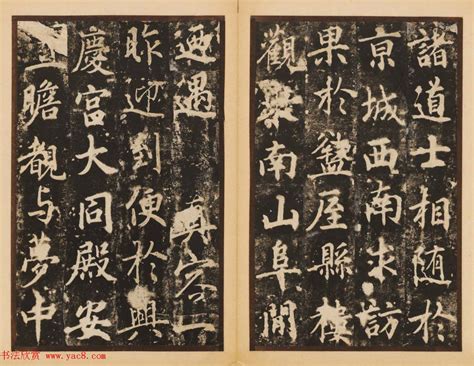 諸道士相隨於
亰城西南求訪
果於盩厔縣樓
觀東南山阜間
迺遇 真容一
昨迎到便於興
慶宮大同殿安
瞻覩与夢中
书法欣赏 www.yac8.com